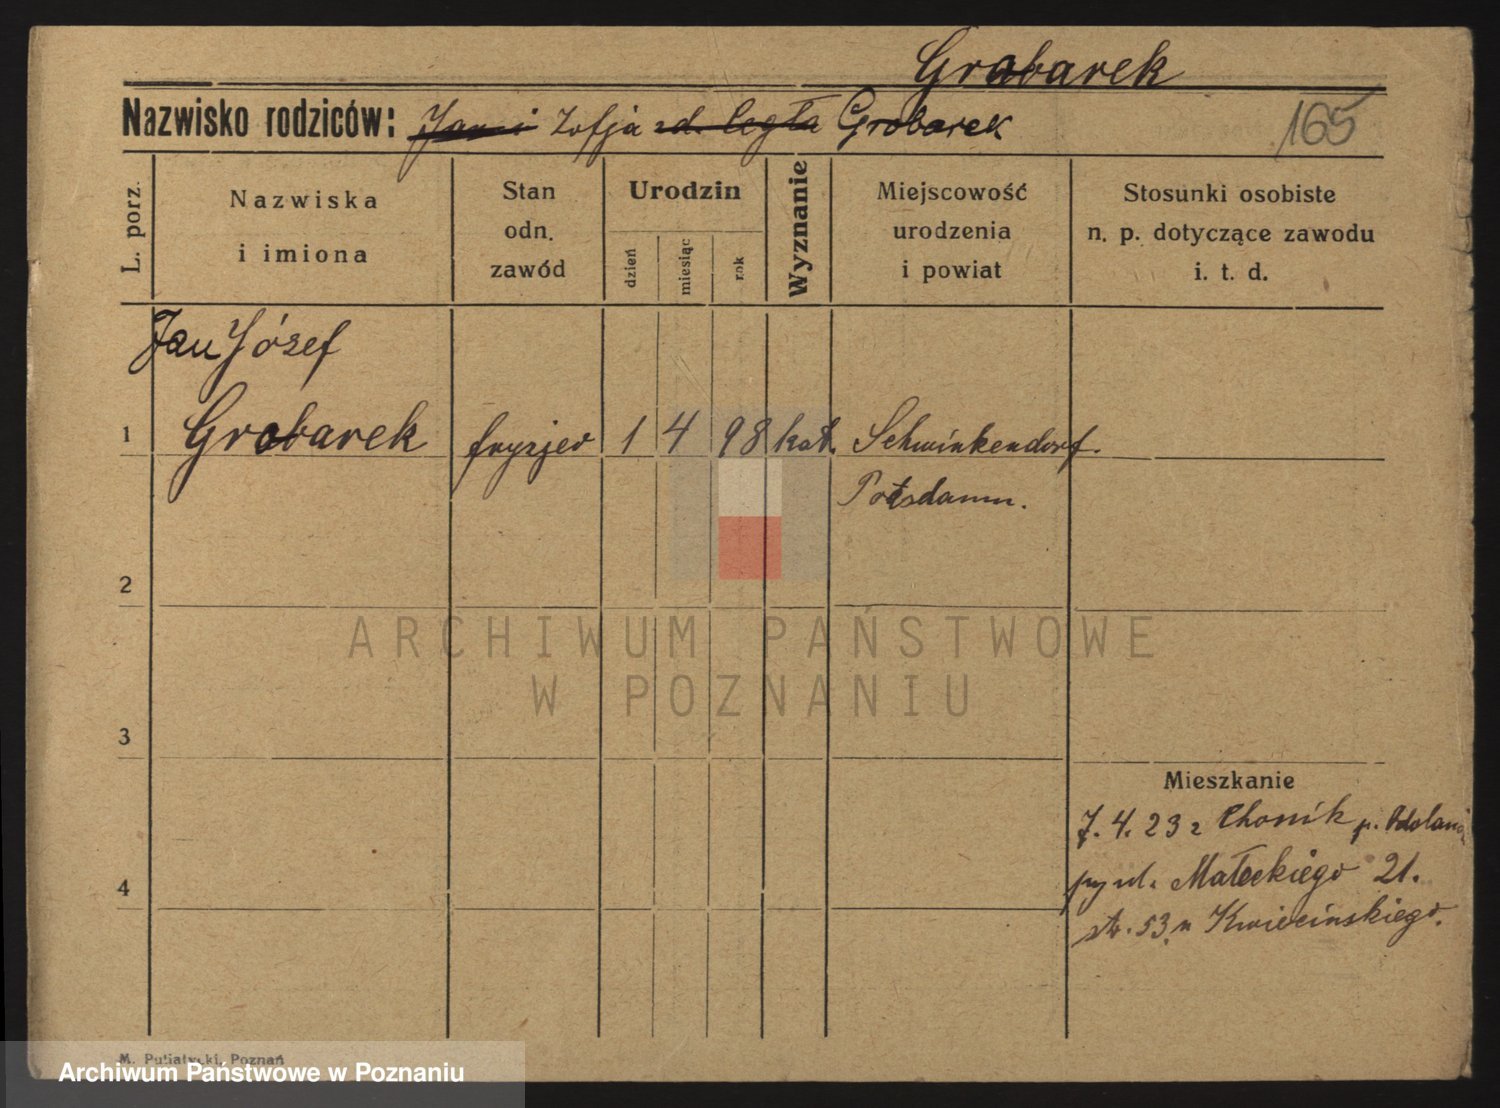 Grobarek
Nazwisko rodziców: Jan i Zofja zd. Cegła Grobarek
165
L. porz.
Nazwiska
i imiona
Stan
odn.
zawód
Urodzin
dzień
miesiąc
rok
Wyznanie
Miejscowość
urodzenia
i powiat
Stosunki osobiste
n. p. dotyczące zawodu
i. t. d.
Jan Józef
1 Grobarek fryzjer 1 4 98 kat. Schwinkendorf.
Potsdamm.
2
3
4
Mieszkanie
7. 4. 23 z p.
Małeckiego 21.
str. 53 u Kwiecińskiego.
M. Putiatycki, Poznań
ARCHIWUM PAŃSTWOWE
W POZNANIU
Archiwum Państwowe w Poznaniu